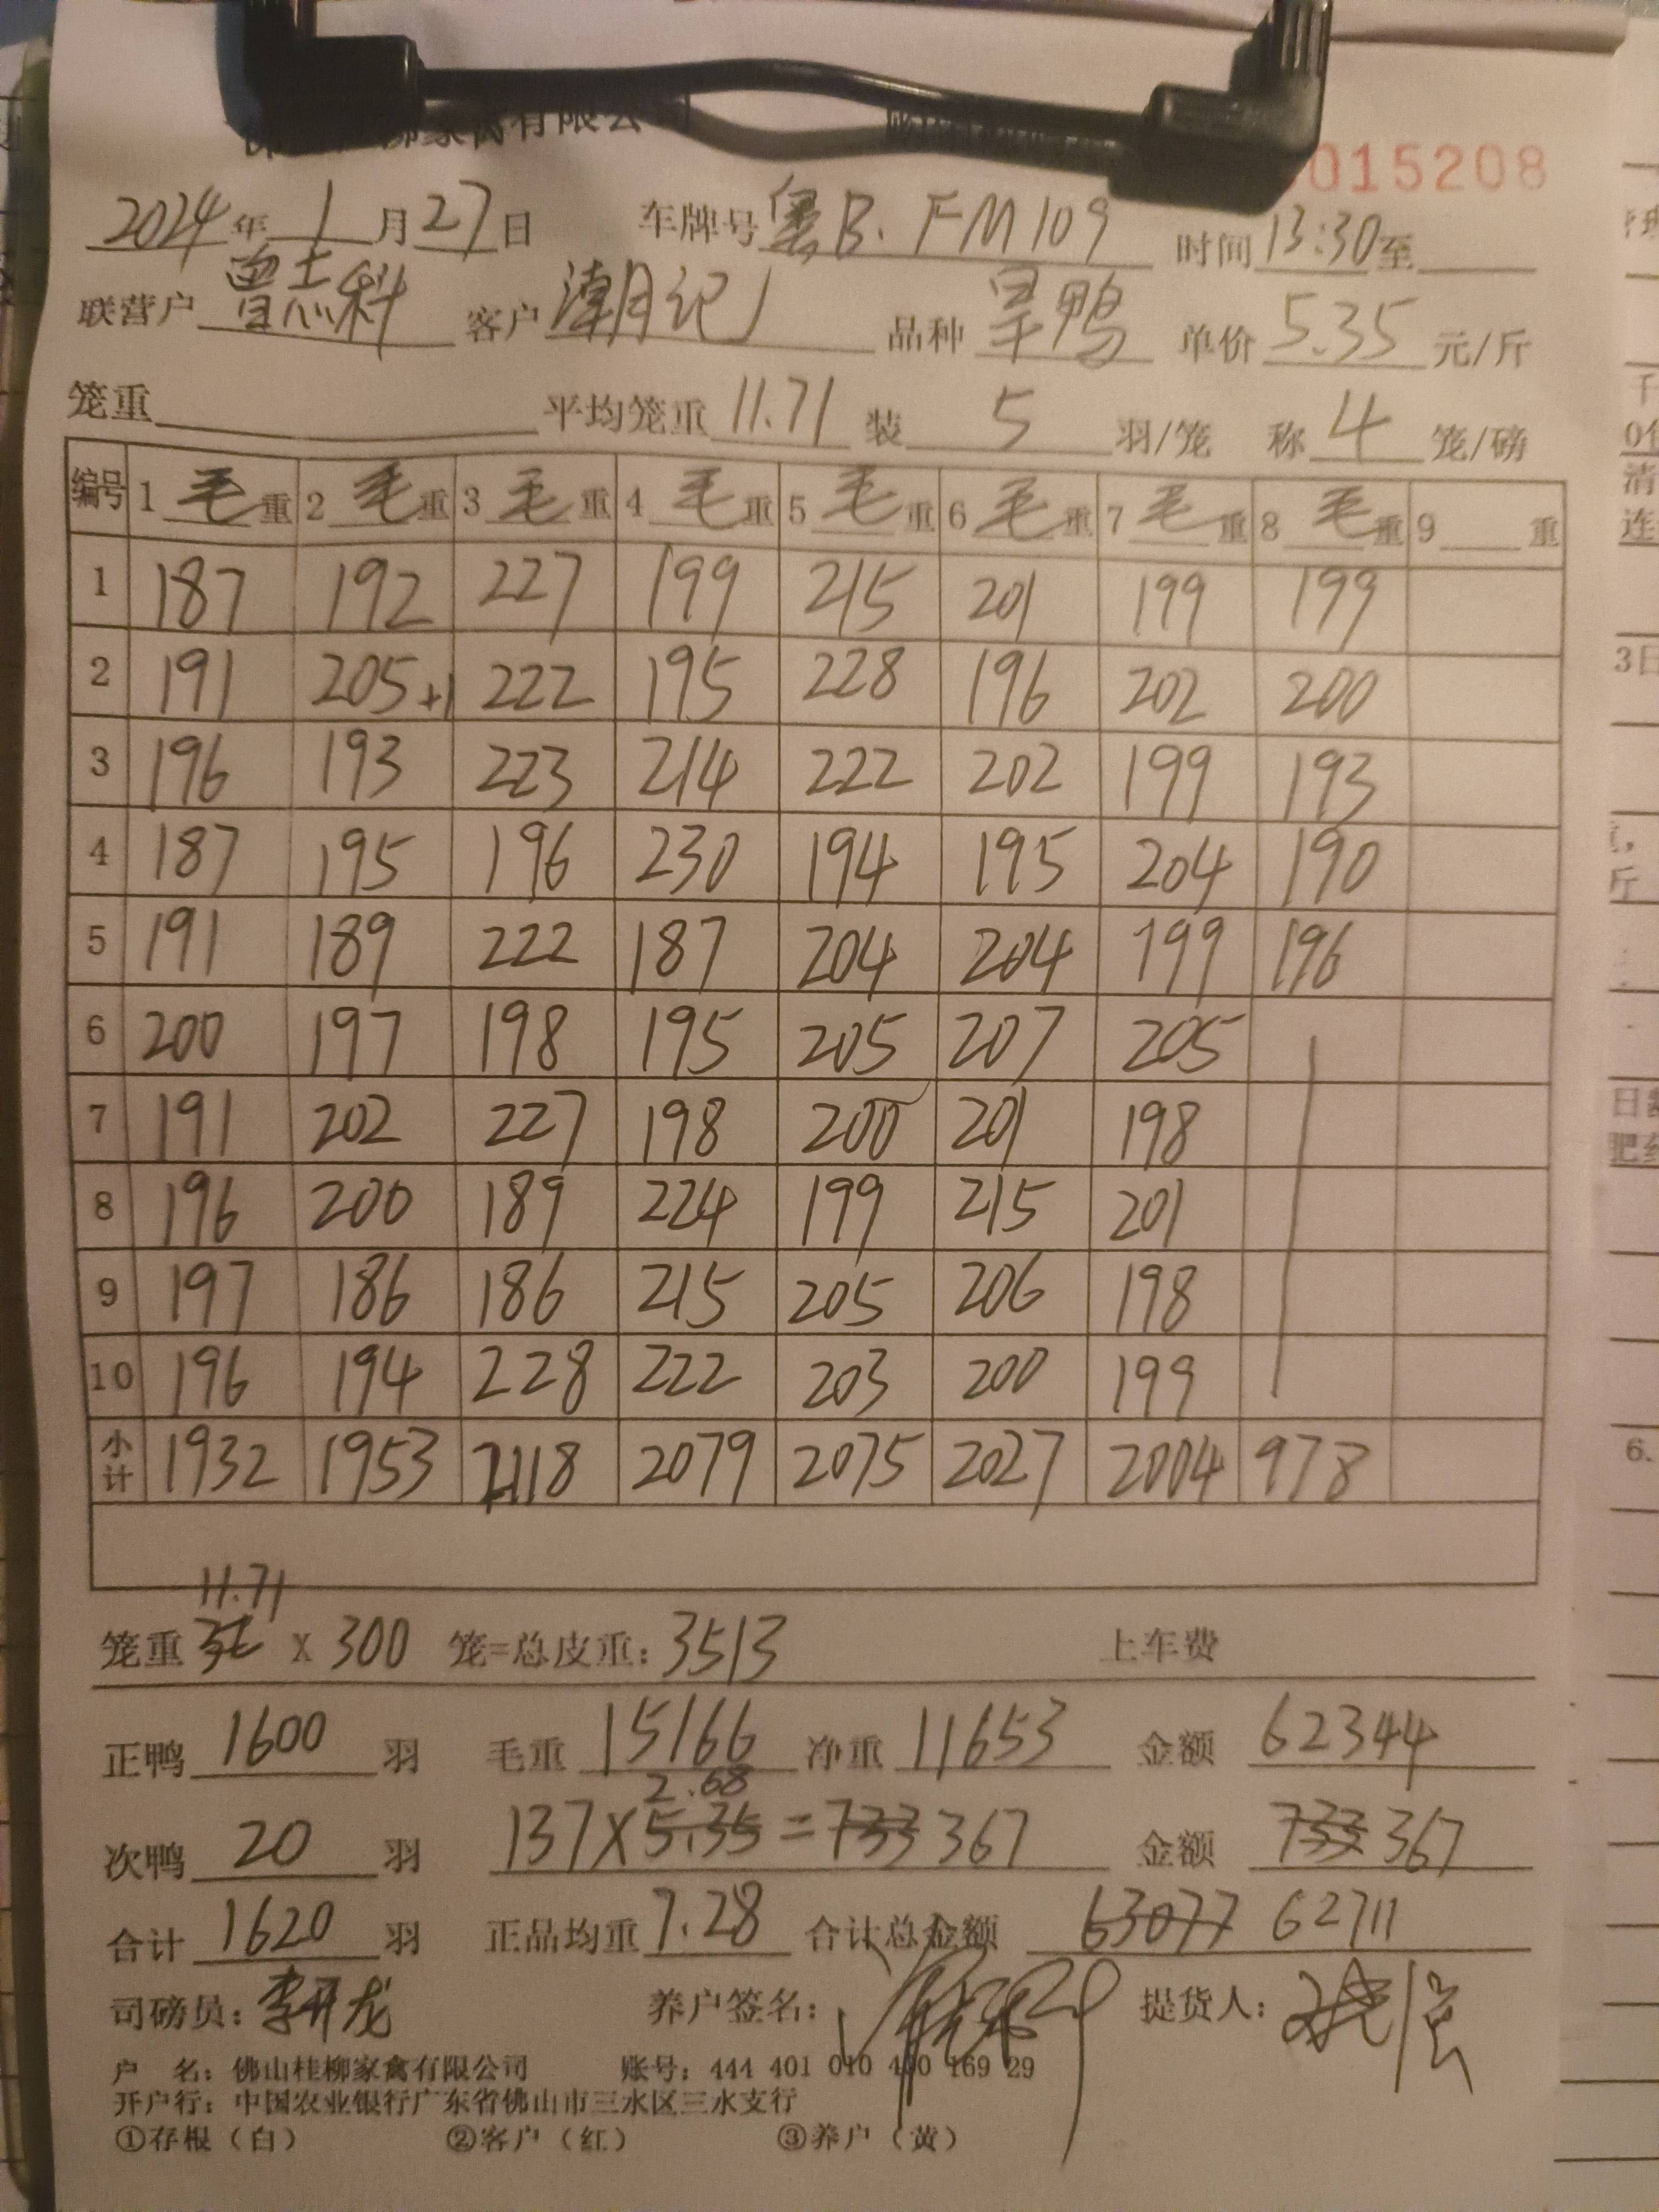 柳家禽有限公
015208
2024年 1 月 27 日 车牌号 粤B. FM109 时间 13:30 至
联营户 曾志科 客户 潮月记 品种 旱鸭 单价 5.35 元/斤
笼重 平均笼重 11.71 装 5 羽/笼 称 4 笼/磅
编号 1 毛重 2 毛重 3 毛重 4 毛重 5 毛重 6 毛重 7 毛重 8 毛重 9 重
1 187 192 227 199 215 201 199 199
2 191 205+1 222 195 228 196 202 200
3 196 193 223 214 222 202 199 193
4 187 195 196 230 194 195 204 190
5 191 189 222 187 204 204 199 196
6 200 197 198 195 205 207 205
7 191 202 227 198 200 201 198
8 196 200 189 224 199 215 201
9 197 186 186 215 205 206 198
10 196 194 228 222 203 200 199
小计 1932 1953 2118 2079 2075 2027 2004 978
11.71
笼重 X 300 笼=总皮重: 3513 上车费
正鸭 1600 羽 毛重 15166 净重 11653 金额 62344
2.68
次鸭 20 羽 137×5.35=733 367 金额 733 367
合计 1620 羽 正品均重 7.28 合计总金额 63077 62711
司磅员: 李开龙 养户签名: 提货人:
户 名: 佛山桂柳家禽有限公司 账号: 444 401 010 400 169 29
开户行: 中国农业银行广东省佛山市三水区三水支行
①存根(白) ②客户(红) ③养户(黄)